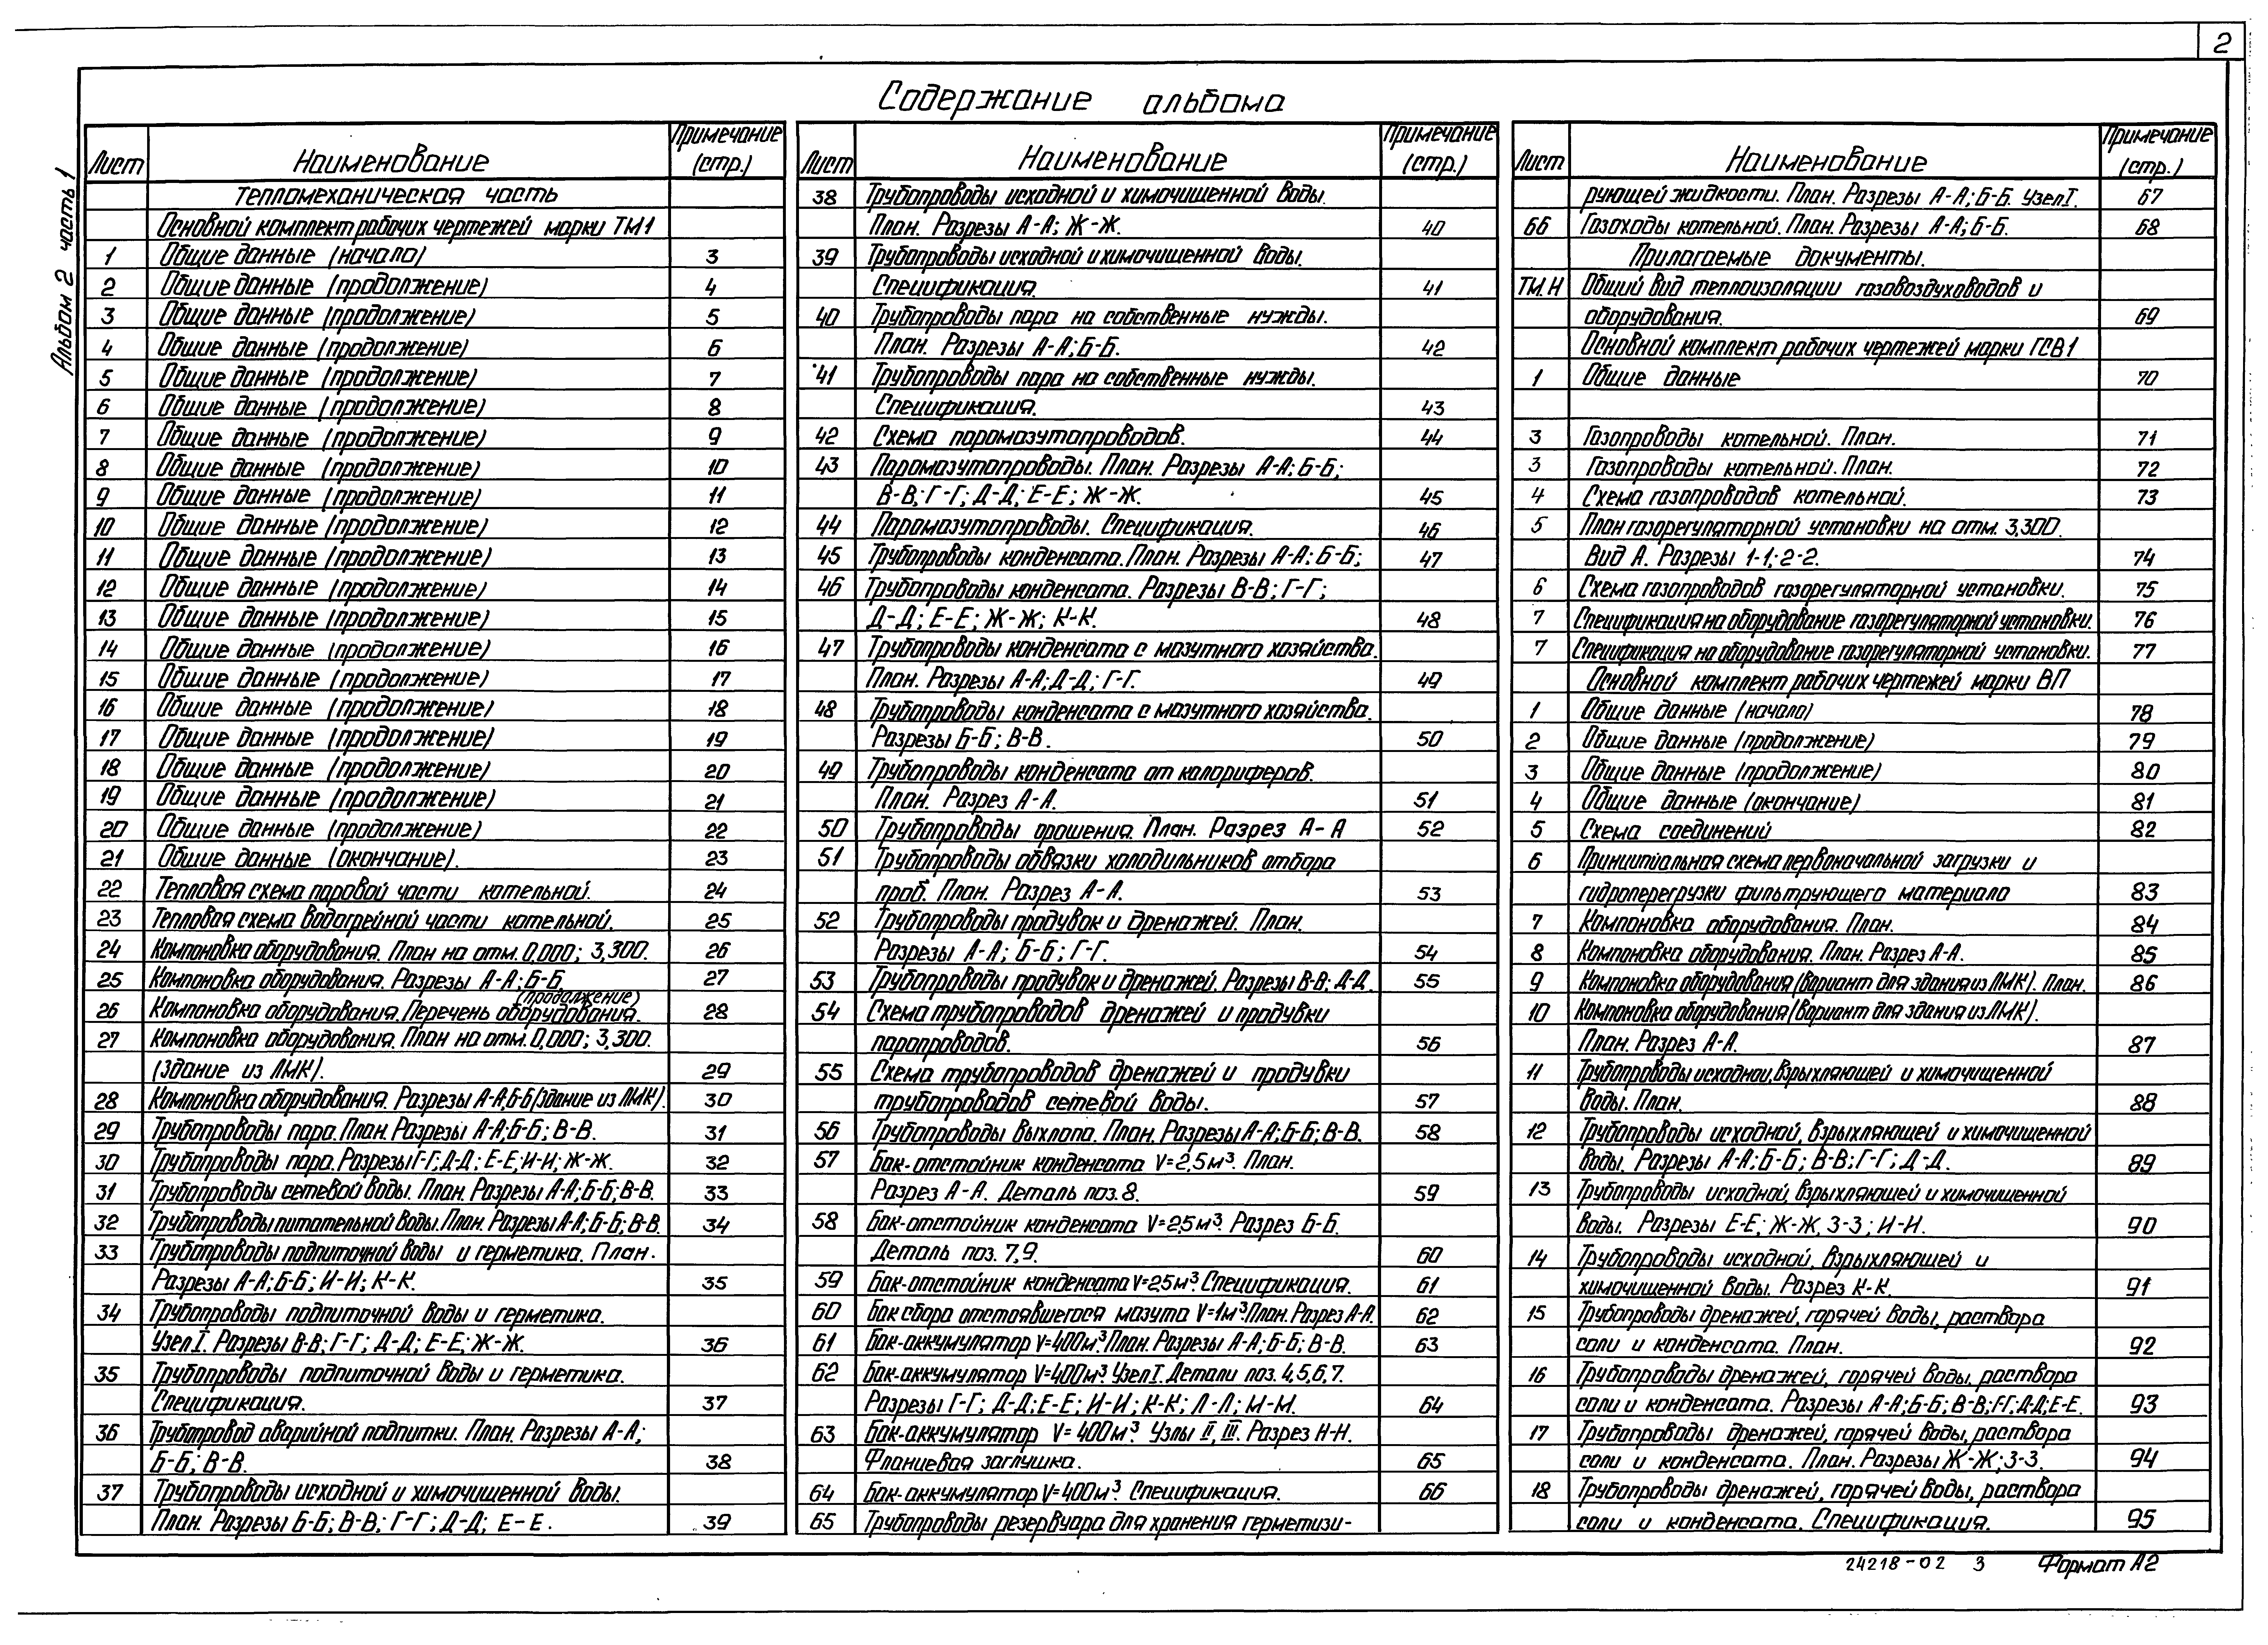 2
Содержание альбома
Альбом 2 часть 1
Лист Наименование Примечание (стр.)
Тепломеханическая часть
Основной комплект рабочих чертежей марки ТМ1
1 Общие данные (начало) 3
2 Общие данные (продолжение) 4
3 Общие данные (продолжение) 5
4 Общие данные (продолжение) 6
5 Общие данные (продолжение) 7
6 Общие данные (продолжение) 8
7 Общие данные (продолжение) 9
8 Общие данные (продолжение) 10
9 Общие данные (продолжение) 11
10 Общие данные (продолжение) 12
11 Общие данные (продолжение) 13
12 Общие данные (продолжение) 14
13 Общие данные (продолжение) 15
14 Общие данные (продолжение) 16
15 Общие данные (продолжение) 17
16 Общие данные (продолжение) 18
17 Общие данные (продолжение) 19
18 Общие данные (продолжение) 20
19 Общие данные (продолжение) 21
20 Общие данные (продолжение) 22
21 Общие данные (окончание). 23
22 Тепловая схема паровой части котельной. 24
23 Тепловая схема водогрейной части котельной. 25
24 Компоновка оборудования. План на отм. 0,000; 3,300. 26
25 Компоновка оборудования. Разрезы А-А; Б-Б 27
(продолжение)
26 Компоновка оборудования. Перечень оборудования. 28
27 Компоновка оборудования. План на отм. 0,000; 3,300.
(здание из ЛМК). 29
28 Компоновка оборудования. Разрезы А-А; Б-Б (здание из ЛМК). 30
29 Трубопроводы пара. План. Разрезы А-А; Б-Б; В-В. 31
30 Трубопроводы пара. Разрезы Г-Г; Д-Д; Е-Е; И-И; Ж-Ж. 32
31 Трубопроводы сетевой воды. План. Разрезы А-А; Б-Б; В-В. 33
32 Трубопроводы питательной воды. План. Разрезы А-А; Б-Б; В-В. 34
33 Трубопроводы подпиточной воды и герметика. План.
Разрезы А-А; Б-Б; И-И; К-К. 35
34 Трубопроводы подпиточной воды и герметика.
Узел I. Разрезы В-В; Г-Г; Д-Д; Е-Е; Ж-Ж. 36
35 Трубопроводы подпиточной воды и герметика.
Спецификация. 37
36 Трубопровод аварийной подпитки. План. Разрезы А-А;
Б-Б; В-В. 38
37 Трубопроводы исходной и химочищенной воды.
План. Разрезы Б-Б; В-В; Г-Г; Д-Д; Е-Е. 39
Лист Наименование Примечание (стр.)
38 Трубопроводы исходной и химочищенной воды.
План. Разрезы А-А; Ж-Ж. 40
39 Трубопроводы исходной и химочищенной воды.
Спецификация. 41
40 Трубопроводы пара на собственные нужды.
План. Разрезы А-А; Б-Б. 42
41 Трубопроводы пара на собственные нужды.
Спецификация. 43
42 Схема паромазутопроводов. 44
43 Паромазутопроводы. План. Разрезы А-А; Б-Б;
В-В; Г-Г; Д-Д; Е-Е; Ж-Ж. 45
44 Паромазутопроводы. Спецификация. 46
45 Трубопроводы конденсата. План. Разрезы А-А; Б-Б; 47
46 Трубопроводы конденсата. Разрезы В-В; Г-Г;
Д-Д; Е-Е; Ж-Ж; К-К. 48
47 Трубопроводы конденсата с мазутного хозяйства.
План. Разрезы А-А; Д-Д; Г-Г. 49
48 Трубопроводы конденсата с мазутного хозяйства.
Разрезы Б-Б; В-В. 50
49 Трубопроводы конденсата от калориферов.
План. Разрез А-А. 51
50 Трубопроводы орошения. План. Разрез А-А 52
51 Трубопроводы обвязки холодильников отбора
проб. План. Разрез А-А. 53
52 Трубопроводы продувок и дренажей. План.
Разрезы А-А; Б-Б; Г-Г. 54
53 Трубопроводы продувок и дренажей. Разрезы В-В; Д-Д. 55
54 Схема трубопроводов дренажей и продувки
паропроводов. 56
55 Схема трубопроводов дренажей и продувки
трубопроводов сетевой воды. 57
56 Трубопроводы выхлопа. План. Разрезы А-А; Б-Б; В-В. 58
57 Бак-отстойник конденсата V=2,5м³. План.
Разрез А-А. Деталь поз. 8. 59
58 Бак-отстойник конденсата V=2,5м³. Разрез Б-Б.
Деталь поз. 7, 9. 60
59 Бак-отстойник конденсата V=2,5м³. Спецификация. 61
60 Бак сбора отстоявшегося мазута V=1м³. План. Разрез А-А. 62
61 Бак-аккумулятор V=400м³. План. Разрезы А-А; Б-Б; В-В. 63
62 Бак-аккумулятор V=400м³ Узел I. Детали поз. 4,5,6,7.
Разрезы Г-Г; Д-Д; Е-Е; И-И; К-К; Л-Л; М-М. 64
63 Бак-аккумулятор V=400м³. Узлы II, III. Разрез Н-Н.
Фланцевая заглушка. 65
64 Бак-аккумулятор V=400м³. Спецификация. 66
65 Трубопроводы резервуара для хранения герметизи-
Лист Наименование Примечание (стр.)
рующей жидкости. План. Разрезы А-А; Б-Б. Узел I. 67
66 Газоходы котельной. План. Разрезы А-А; Б-Б. 68
Прилагаемые документы.
ТМ.Н Общий вид теплоизоляции газовоздуховодов и
оборудования. 69
Основной комплект рабочих чертежей марки ГСВ1
1 Общие данные 70
3 Газопроводы котельной. План. 71
3 Газопроводы котельной. План. 72
4 Схема газопроводов котельной. 73
5 План газорегуляторной установки на отм. 3,300.
Вид А. Разрезы 1-1; 2-2. 74
6 Схема газопроводов газорегуляторной установки. 75
7 Спецификация на оборудование газорегуляторной установки. 76
7 Спецификация на оборудование газорегуляторной установки. 77
Основной комплект рабочих чертежей марки ВП
1 Общие данные (начало) 78
2 Общие данные (продолжение) 79
3 Общие данные (продолжение) 80
4 Общие данные (окончание) 81
5 Схема соединений 82
6 Принципиальная схема первоначальной загрузки и
гидроперегрузки фильтрующего материала 83
7 Компоновка оборудования. План. 84
8 Компоновка оборудования. План. Разрез А-А. 85
9 Компоновка оборудования (вариант для здания из ЛМК). План. 86
10 Компоновка оборудования (вариант для здания из ЛМК).
План. Разрез А-А. 87
11 Трубопроводы исходной, взрыхляющей и химочищенной
воды. План. 88
12 Трубопроводы исходной, взрыхляющей и химочищенной
воды. Разрезы А-А; Б-Б; В-В; Г-Г; Д-Д. 89
13 Трубопроводы исходной, взрыхляющей и химочищенной
воды. Разрезы Е-Е; Ж-Ж, З-З; И-И. 90
14 Трубопроводы исходной, взрыхляющей и
химочищенной воды. Разрез К-К. 91
15 Трубопроводы дренажей, горячей воды, раствора
соли и конденсата. План. 92
16 Трубопроводы дренажей, горячей воды, раствора
соли и конденсата. Разрезы А-А; Б-Б; В-В; Г-Г; Д-Д; Е-Е. 93
17 Трубопроводы дренажей, горячей воды, раствора
соли и конденсата. План. Разрезы Ж-Ж; З-З. 94
18 Трубопроводы дренажей, горячей воды, раствора
соли и конденсата. Спецификация. 95
24218-02 3 Формат А2